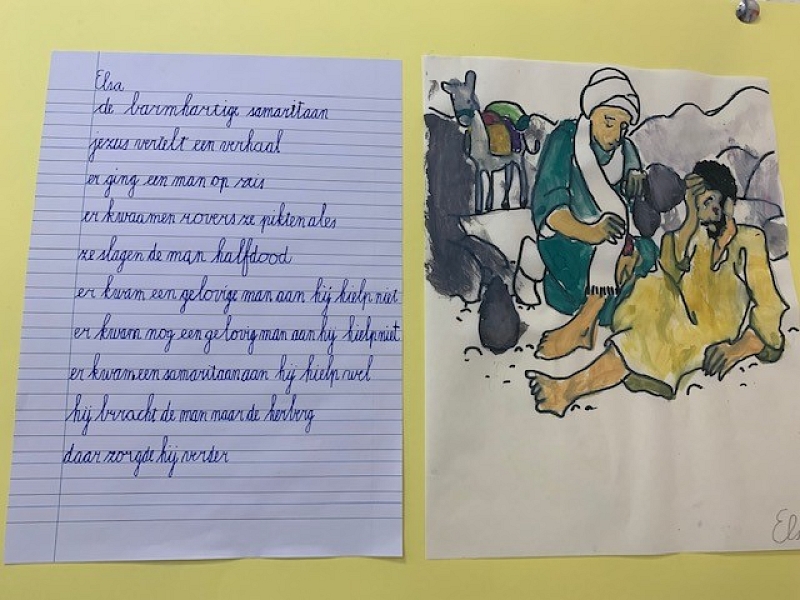 Elsa
de barmhartige samaritaan
jezus vertelt een verhaal
er ging een man op rais
er kwaamen rovers ze pikten ales
ze slagen de man halfdood
er kwam een gelovige man aan hij hielp niet
er kwam nog een gelovig man aan hij hielp niet
er kwam een samaritaan aan hij hielp wel
hij bracht de man naar de herberg
daar zorgde hij verder
Els